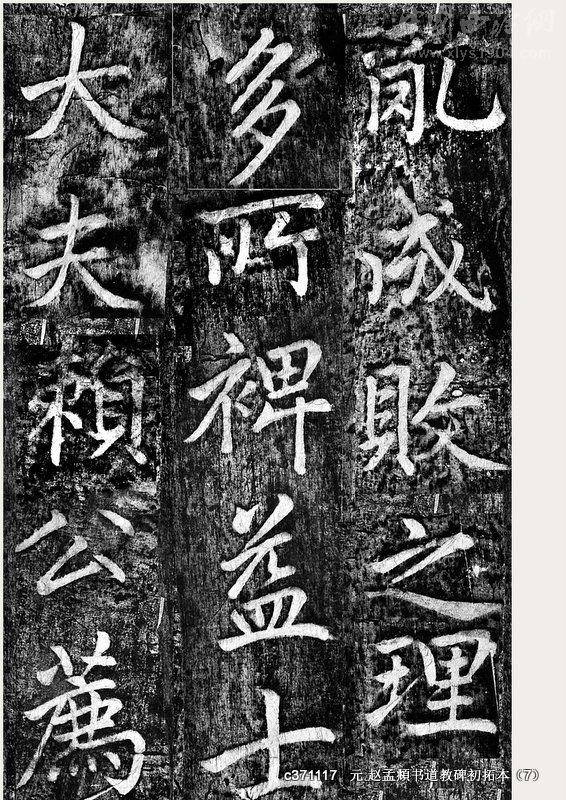 亂成敗之理
多所裨益士
大夫賴公薦
c371117 元.赵孟頫书道教碑初拓本（7）